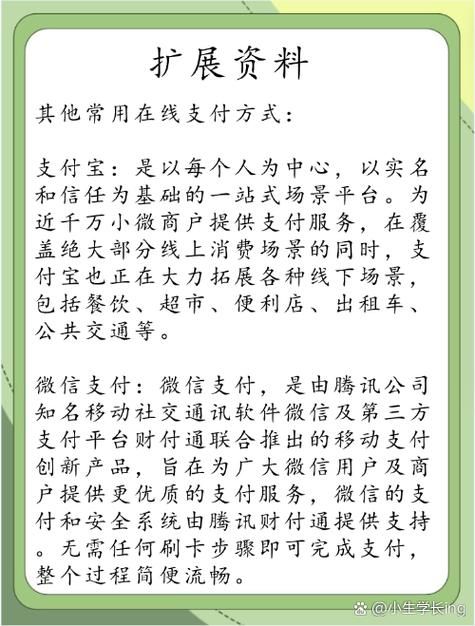 扩展资料
其他常用在线支付方式：
支付宝：是以每个人为中心，以实名
和信任为基础的一站式场景平台。为
近千万小微商户提供支付服务，在覆
盖绝大部分线上消费场景的同时，支
付宝也正在大力拓展各种线下场景，
包括餐饮、超市、便利店、出租车、
公共交通等。
微信支付：微信支付，是由腾讯公司
知名移动社交通讯软件微信及第三方
支付平台财付通联合推出的移动支付
创新产品，旨在为广大微信用户及商
户提供更优质的支付服务，微信的支
付和安全系统由腾讯财付通提供支持
。无需任何刷卡步骤即可完成支付，
整个过程简便流畅。
@小生学长ing